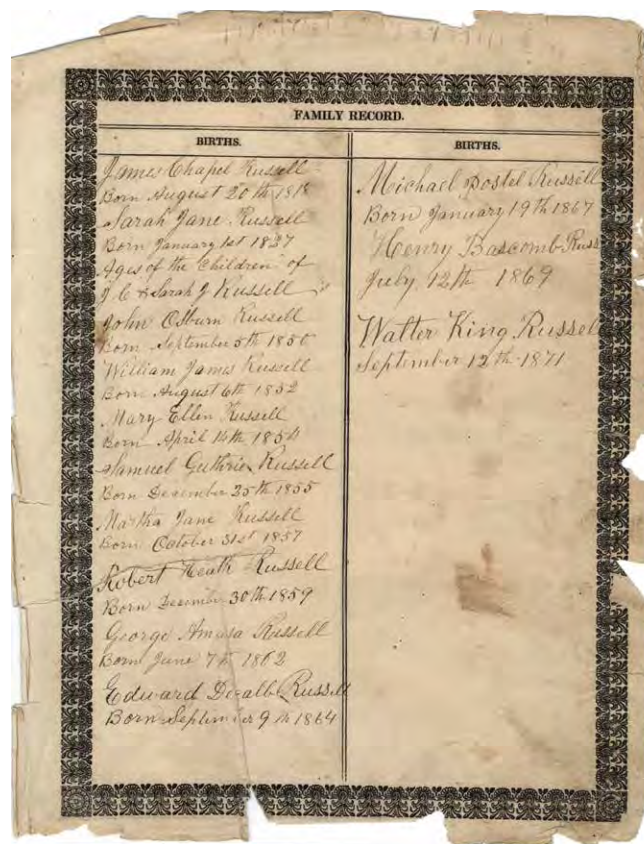 FAMILY RECORD.
BIRTHS.
James Chapel Russell
Born August 20th 1818
Sarah Jane Russell
Born January 1st 1837
Ages of the Children of
J. C & Sarah J Russell
John Osburn Russell
Born September 5th 1850
William James Russell
Born August 6th 1852
Mary Ellen Russell
Born April 14th 1854
Samuel Guthrie Russell
Born December 25th 1855
Martha Jane Russell
Born October 31st 1857
Robert Heath Russell
Born December 30th 1859
George Amasa Russell
Born June 7th 1862
Edward Dealb Russell
Born September 9th 1864
BIRTHS.
Michael Postel Russell
Born January 19th 1867
Henry Bascomb Russ
July 12th 1869
Walter King Russel
September 12th 1871